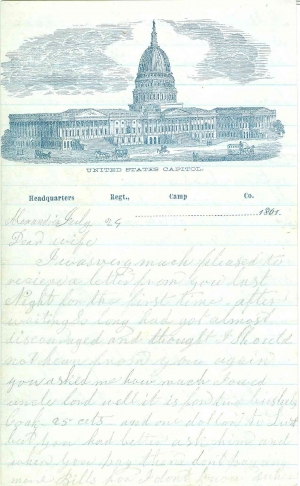 UNITED STATES CAPITOL.
Headquarters Regt., Camp Co.
1861.
July 24
Dead wife
I was very much pleased to
recieve a letter from you last
Night for the first time after
waiting so long had got almost
discouraged and thought I should
not hear from you again
you asked me how much I owed
uncle lord well it is for two bushels
25 cts and one dollar
but you had better ask him and
when you pay them dont pay any
more Bills for I dont know when